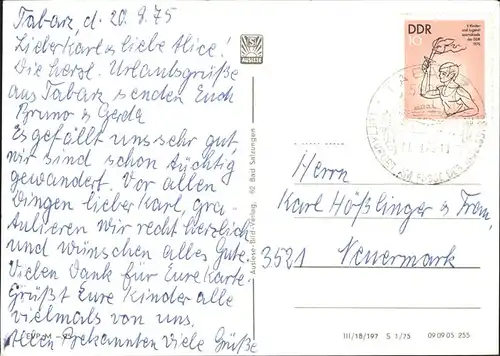 Tabarz, d. 20.9.75
Lieber Karl & liebe Alice!
Die herzl. Urlaubsgrüße
aus Tabarz senden Euch
Bruno & Gerda
Es gefällt uns sehr gut,
wir sind schon tüchtig
gewandert. Vor allen
Dingen lieber Karl, gra-
tulieren wir recht herzlich
und wünschen alles Gute.
Vielen Dank für Eure Karte.
Grüßt Eure Kinder alle
vielmals von uns.
Allen Bekannten Viele Grüße
AUSLESE
Auslese-Bild-Verlag, 62 Bad Salzungen
DDR
10
V. Kinder-
und Jugend-
spartakiade
der DDR
1975
Herrn
Karl Hößlinger & Frau,
3521 Neuermark
III/18/197 S 1/75 09 09 05 255